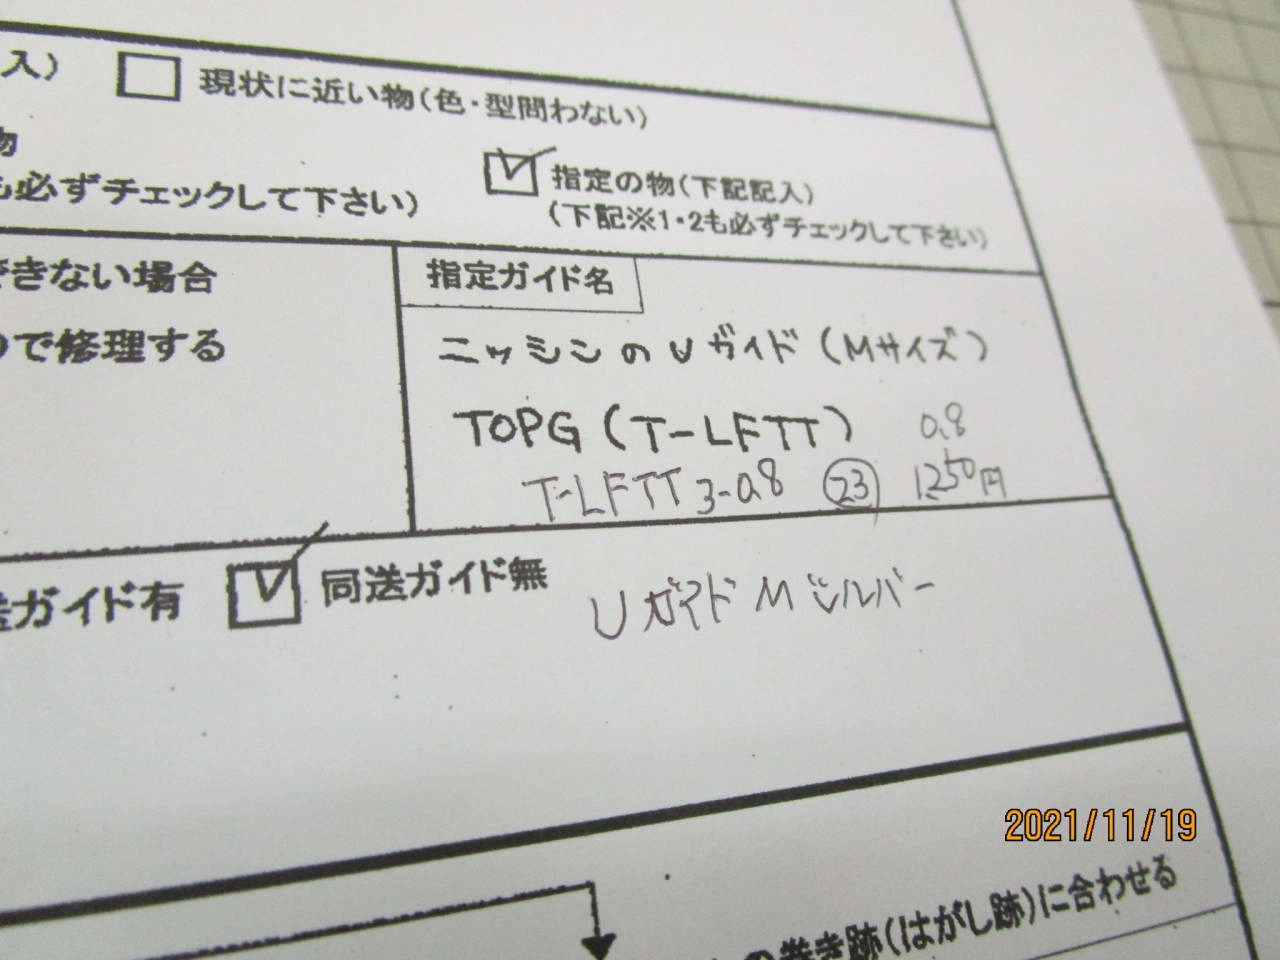 入)
現状に近い物(色・型問わない)
物
も必ずチェックして下さい)
指定の物(下記記入)
(下記※1・2も必ずチェックして下さい)
できない場合
で修理する
指定ガイド名
ニッシンのUガイド(Mサイズ)
TOPG(T-LFTT) 0.8
T-LFTT 3-0.8 23 1250円
ガイド有
同送ガイド無
Uガイド M シルバー
2021/11/19
の巻き跡(はがし跡)に合わせる